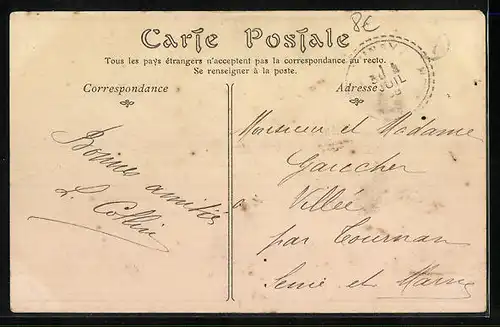 8€
Carte Postale
Tous les pays étrangers n'acceptent pas la correspondance au recto.
Se renseigner à la poste.
Correspondance
Adresse
Bonnes amitiés
L. Collin
Monsieur et Madame
à Villée
par Tournan
Seine et Marne